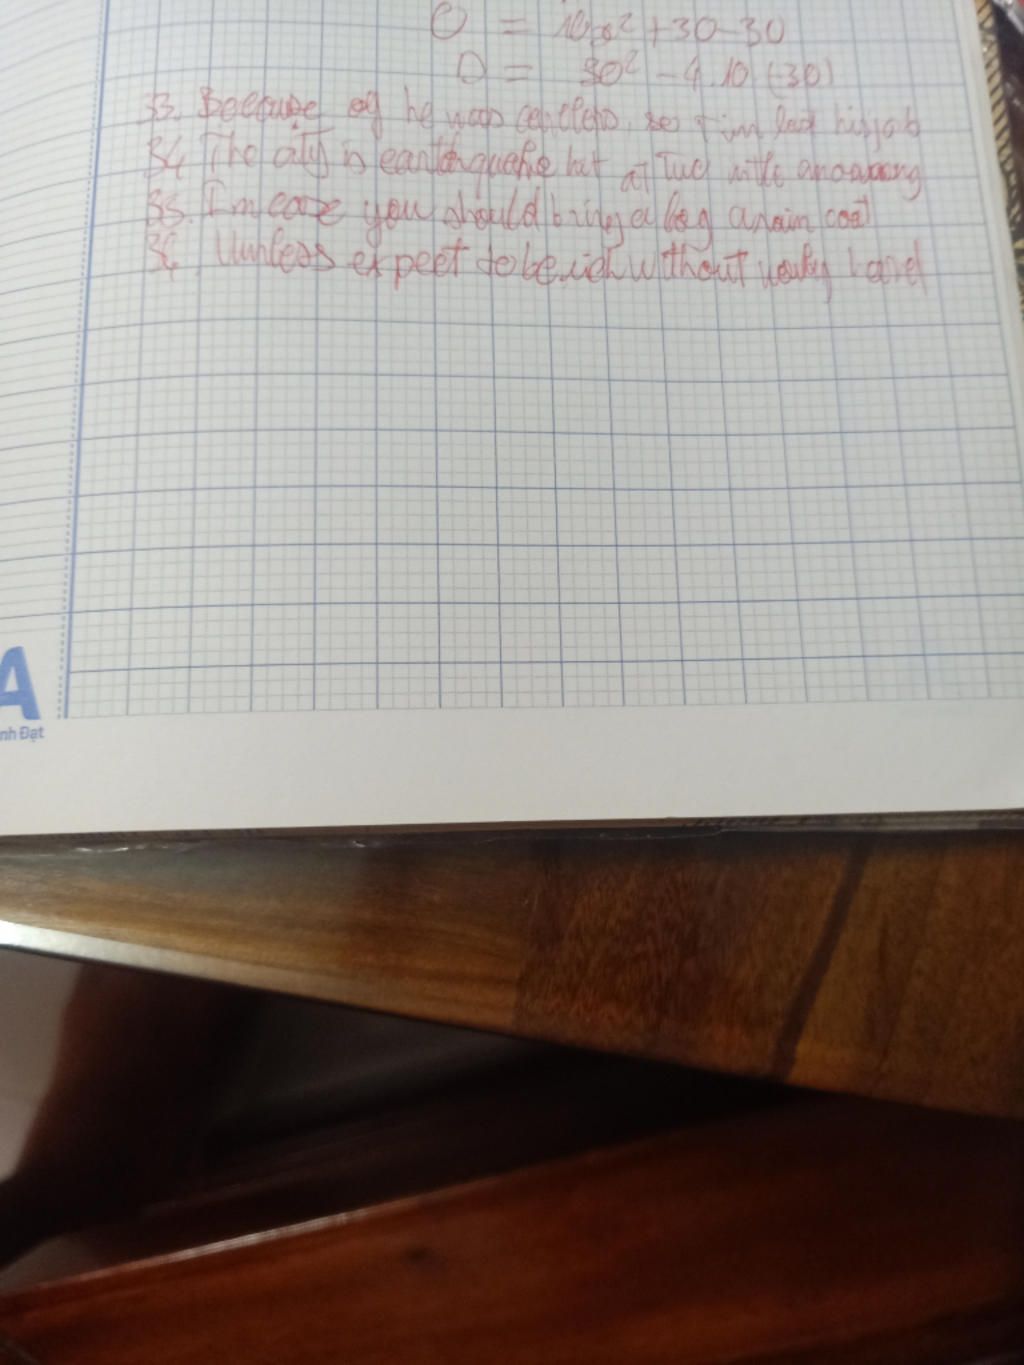 = 10x² + 30 - 30
= 30² - 4.10 (-30)
33. Because of he was careless, so Tim lost his job
34 The city is earthquake but at Tuc with
35. In case you should bring a bag a rain coat
36. Uunless expect to be rich without hard
A
nh Đạt